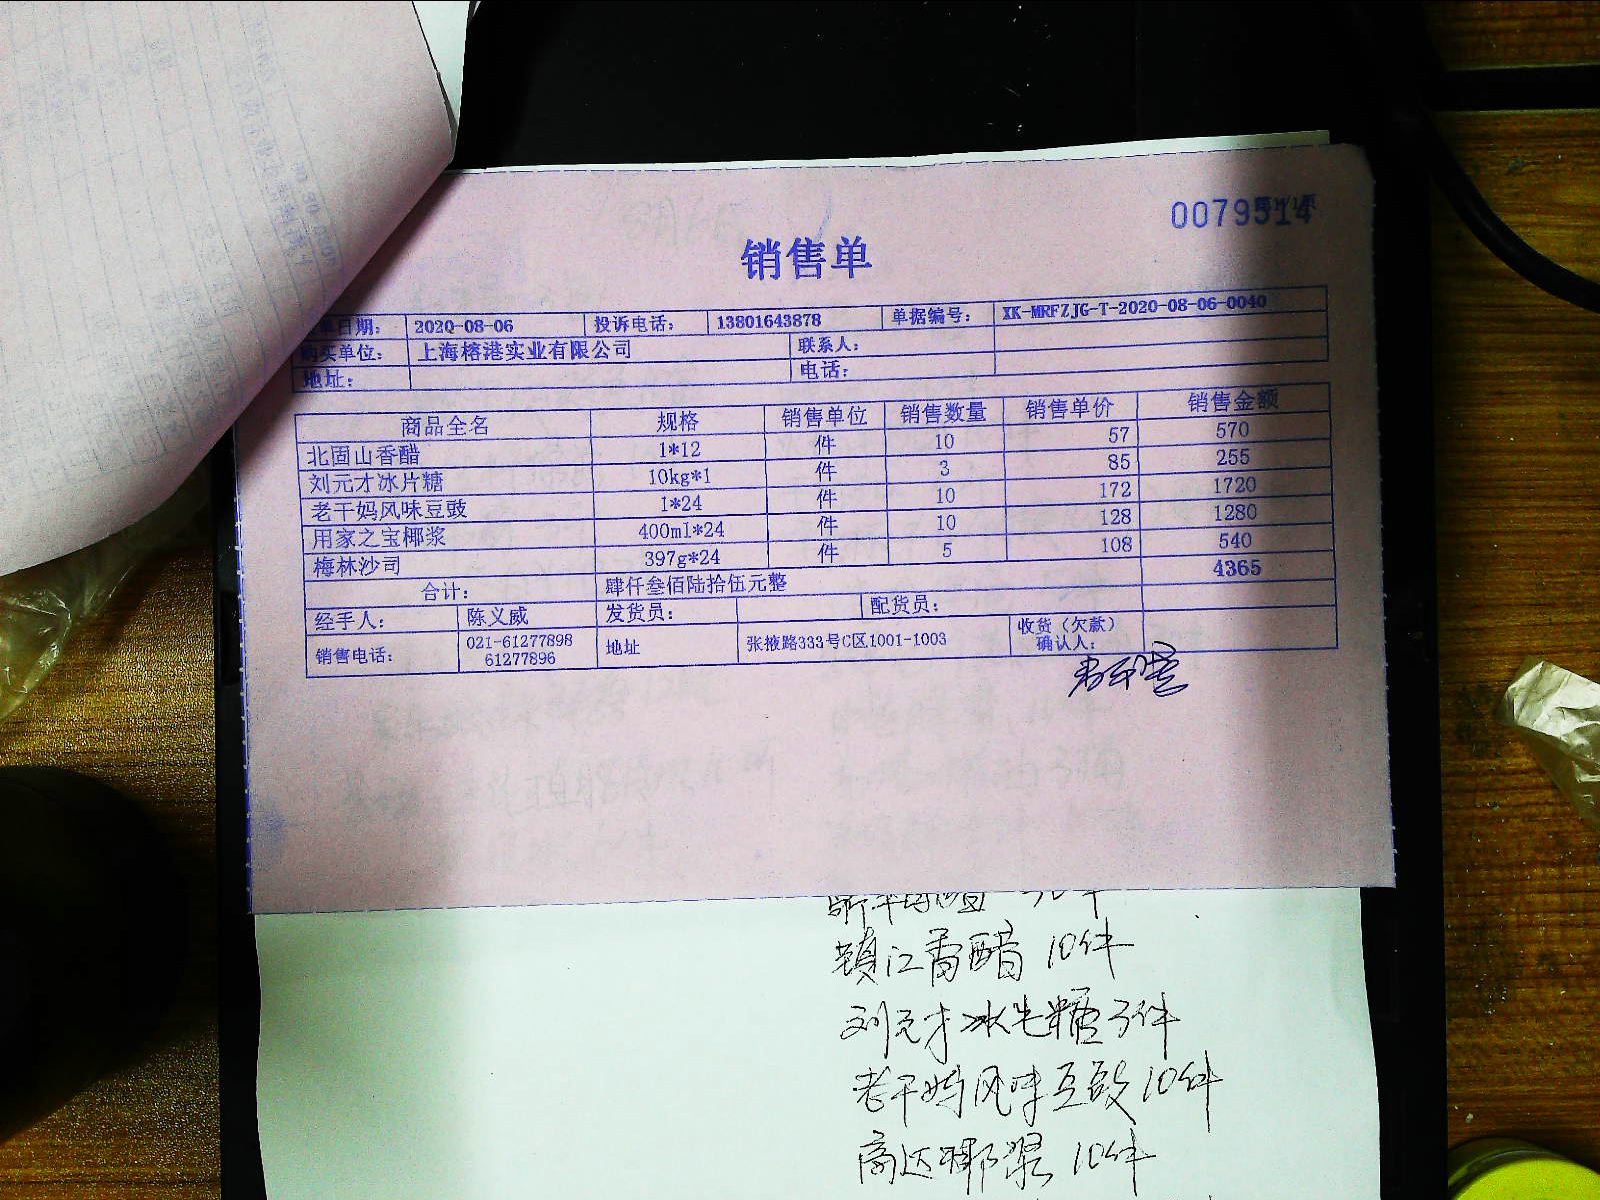 0079514
销售单
单日期： 2020-08-06 投诉电话： 13801643878 单据编号： XK-MRFZJG-T-2020-08-06-0040
购买单位： 上海榕港实业有限公司 联系人：
地址： 电话：
商品全名 规格 销售单位 销售数量 销售单价 销售金额
北固山香醋 1*12 件 10 57 570
刘元才冰片糖 10kg*1 件 3 85 255
老干妈风味豆豉 1*24 件 10 172 1720
用家之宝椰浆 400ml*24 件 10 128 1280
梅林沙司 397g*24 件 5 108 540
合计： 肆仟叁佰陆拾伍元整 4365
经手人： 陈义威 发货员： 配货员：
销售电话： 021-61277898 61277896 地址 张掖路333号C区1001-1003 收货（欠款）确认人：
镇江香醋 10件
刘元才冰片糖 3件
老干妈风味豆豉 10件
高达椰浆 10件